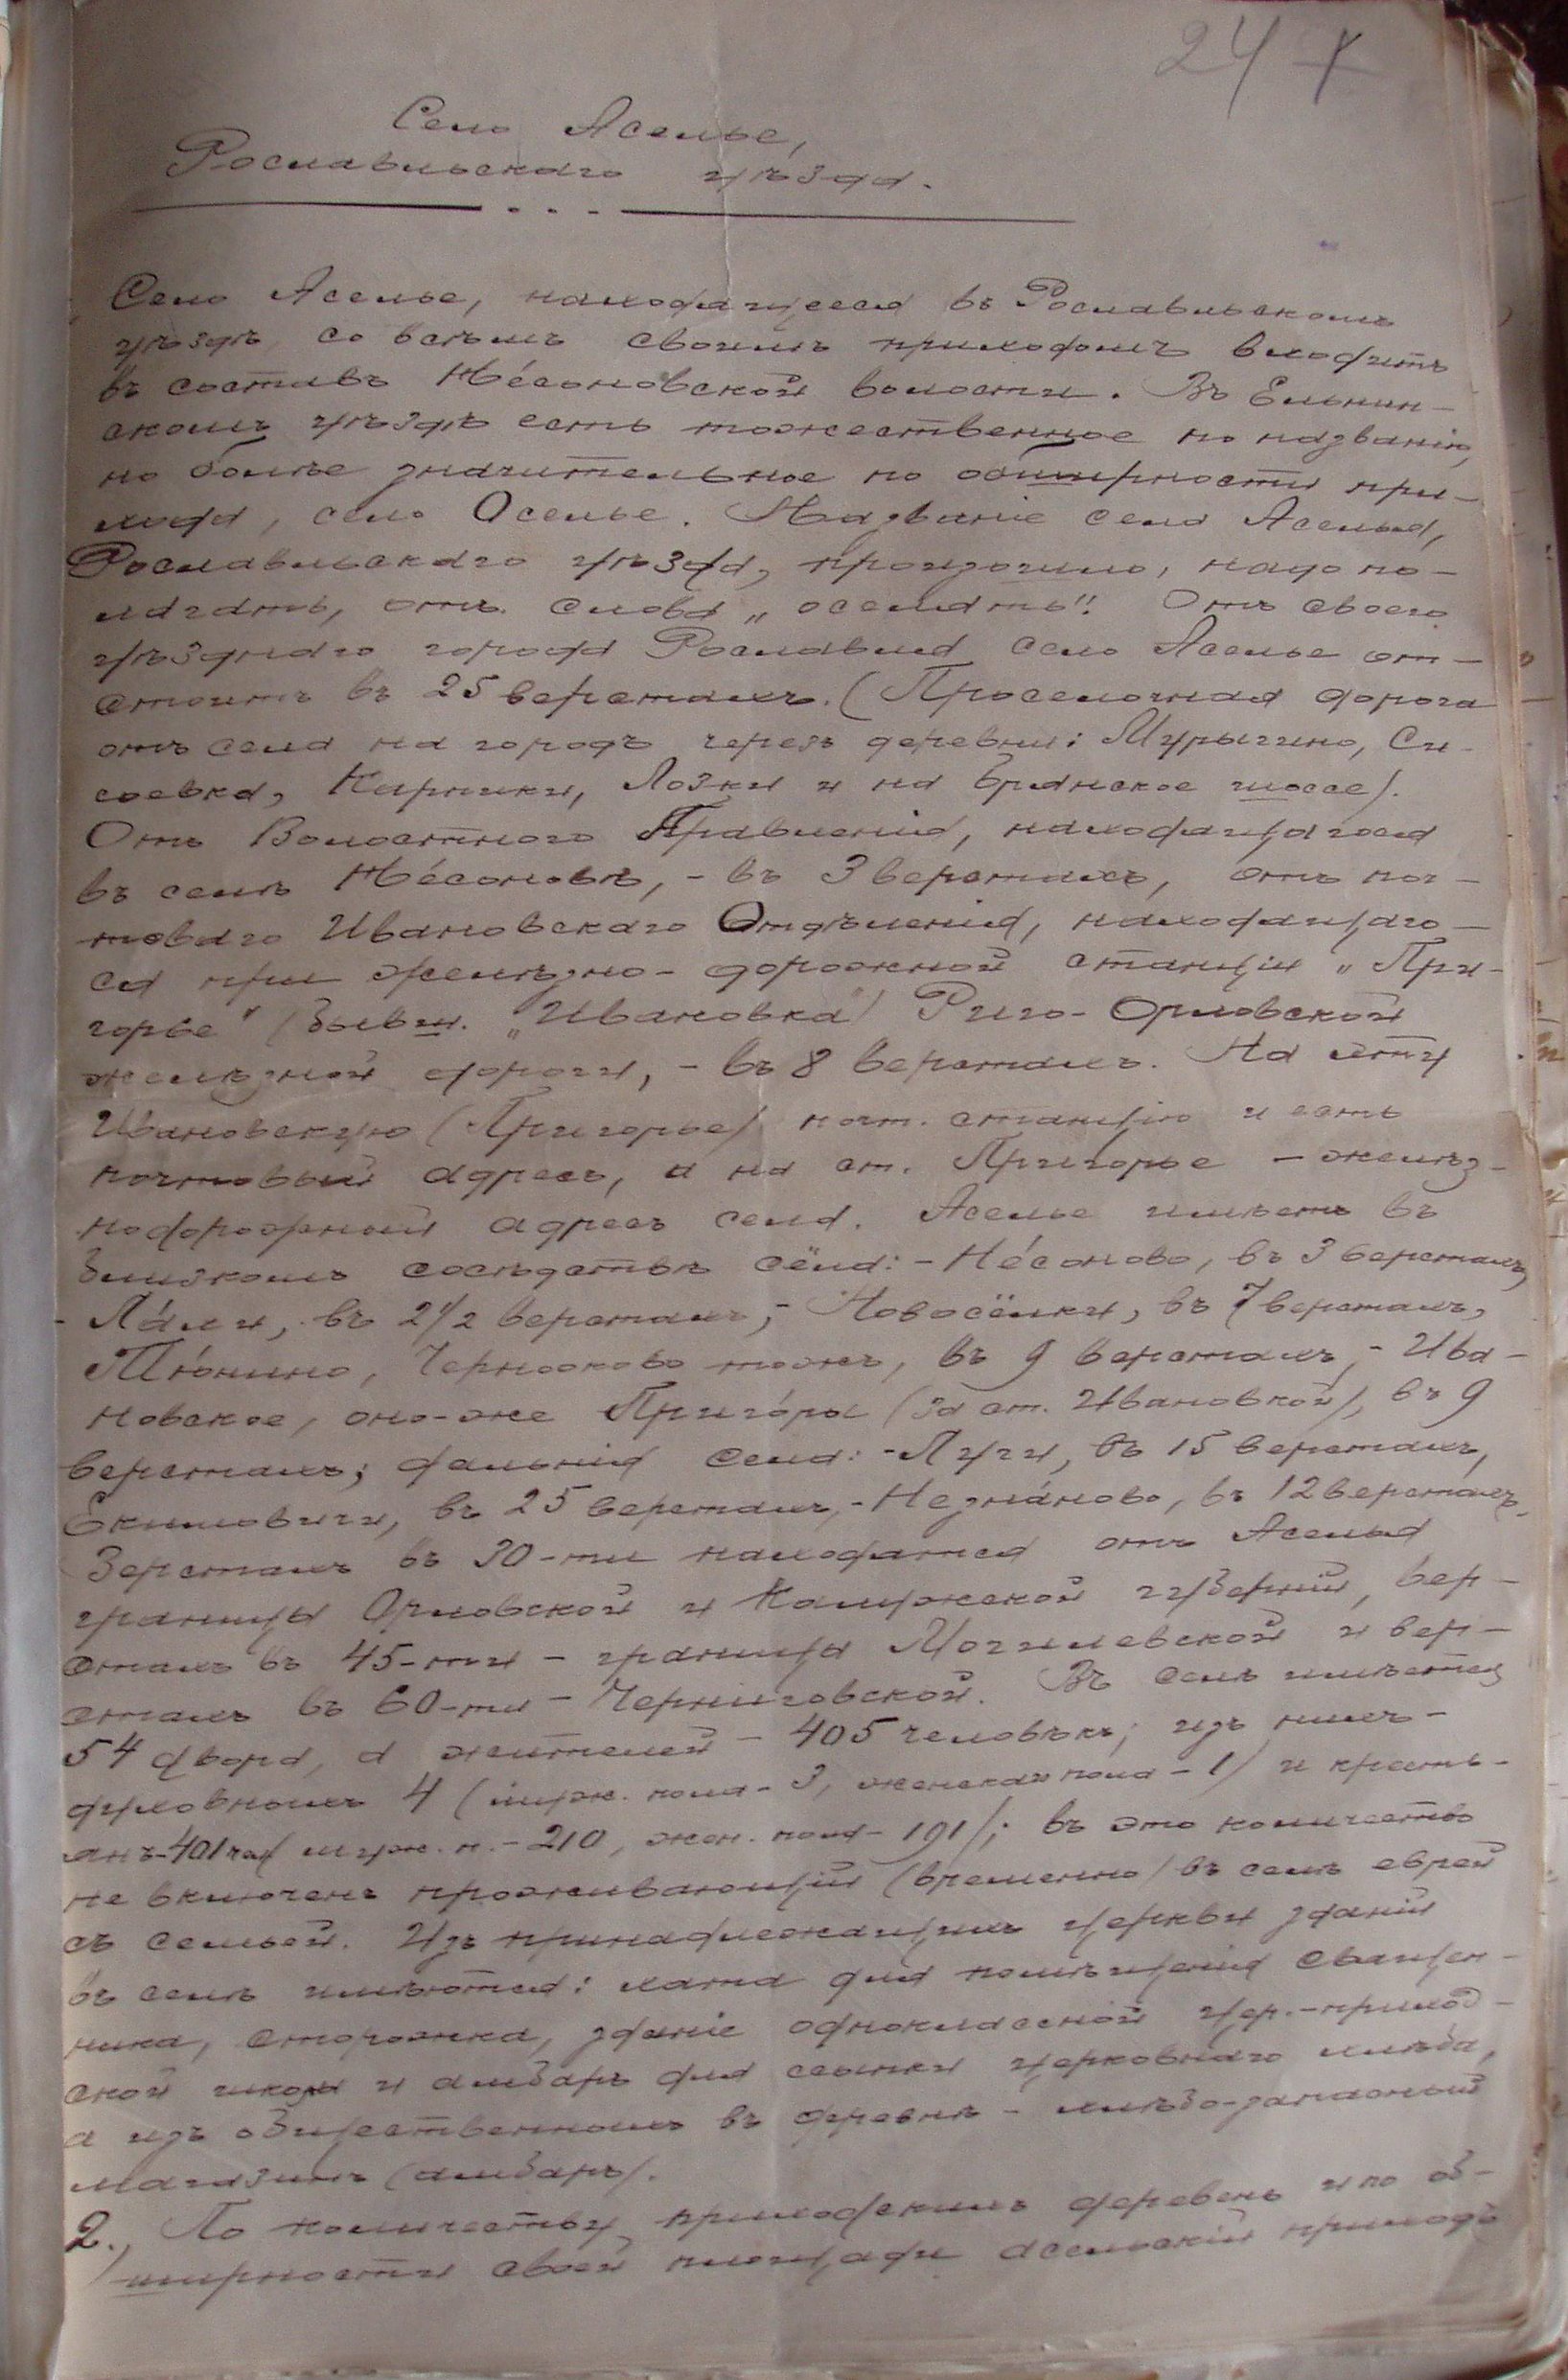 24
Село Аселье,
Рославльскаго уѣзда.
Село Аселье, находящееся въ Рославльскомъ
уѣздѣ, со всѣмъ своимъ приходомъ входитъ
въ составъ Не́соновской волости. Въ Ельнин-
скомъ уѣздѣ есть тожественное по названію,
но болѣе значительное по обширности при-
хода, село Оселье. Названіе села Аселья,
Рославльскаго уѣзда, произошло, надо по-
лагать, отъ слова „оселять". Отъ своего
уѣзднаго города Рославля село Аселье от-
стоитъ въ 25 верстахъ. (Проселочная дорога
отъ села на городъ черезъ деревни: Мурыгино, Сы-
соевка, Карпики, Лозки и на Брянское шоссе).
Отъ Волостного Правленія, находящагося
въ селѣ Не́соновѣ, - въ 3 верстахъ, отъ поч-
товаго Ивановскаго Отдѣленія, находящаго-
ся при желѣзно-дорожной станціи „При-
горье" (бывш. „Ивановка") Риго-Орловской
желѣзной дороги, - въ 8 верстахъ. На эту
Ивановскую (Пригорье) почт. станцію и есть
почтовый адресъ, а на ст. Пригорье - желѣз-
нодорожный адресъ села. Аселье имѣетъ въ
близкомъ сосѣдствѣ сёла: - Не́соново, въ 3 верстахъ,
- Ла́хи, въ 2 1/2 верстахъ, - Новосёлки, въ 7 верстахъ,
Тю́нино, Черноково тожъ, въ 9 верстахъ, - Ива-
новское, оно-же Приго́ры (за ст. Ивановкой), въ 9
верстахъ; дальнія села: - Луги, въ 15 верстахъ,
Екимовичи, въ 25 верстахъ, - Незна́ново, въ 12 верстахъ.
Верстахъ въ 30-ти находятся отъ Аселья
границы Орловской и Калужской губерній, вер-
стахъ въ 45-ти - граница Могилевской и вер-
стахъ въ 60-ти - Черниговской. Въ селѣ имѣется
54 двора, а жителей - 405 человѣкъ; изъ нихъ -
духовныхъ 4 (муж. пола - 3, женскаго пола - 1) и кресть-
янъ - 401 чел. (муж. п. - 210, жен. пола - 191); въ это количество
не включенъ проживающій (временно) въ селѣ еврей
съ семьей. Изъ принадлежащихъ церкви зданій
въ селѣ имѣются: хата для помѣщенія священ-
ника, сторожка, зданіе одноклассной цер.-приход-
ской школы и амбаръ для ссыпки церковнаго хлѣба,
а изъ общественныхъ въ деревнѣ - хлѣбо-запасный
магазинъ (амбаръ).
2., По количеству приходскихъ деревень и по об-
ширности своей площади асельскій приходъ